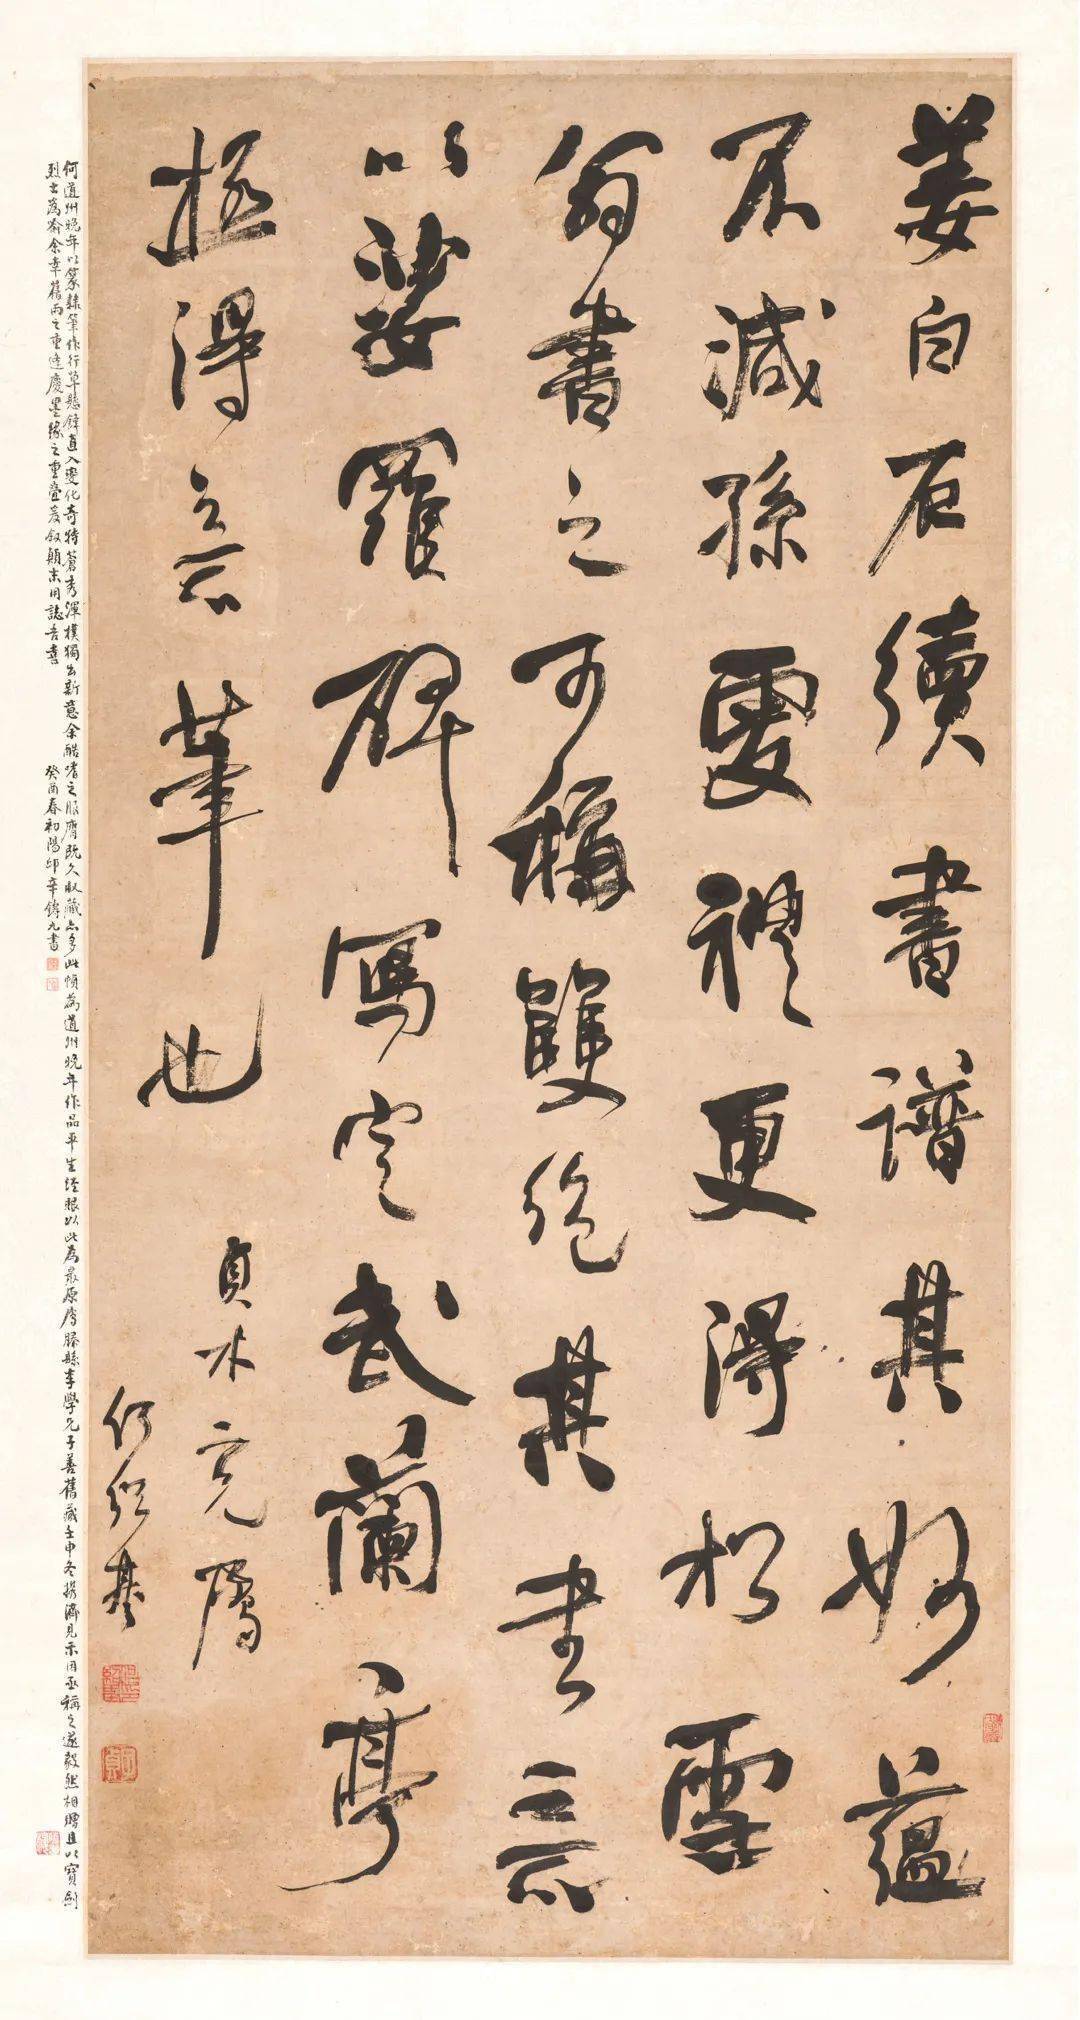 姜白石續書譜其妙蘊
不減孫虔禮更得松雪
翁書之可稱雙絕其書意
以娑羅碑寫定武蘭亭
極得意筆也
貞木克屬
何紹基
何道州晚年以篆隸筆作行草懸鋒直入變化奇特蒼秀渾樸獨出新意余酷嗜之服膺既久收藏亦多此幀為道州晚年作品平生經眼以此為最原為滕縣李學兄子善舊藏壬申冬攜濟見示因亟稱之遂毅然相贈且以寶劍
烈士為喻余幸舊雨之重逢慶墨緣之重疊爰敘顛末用誌吾喜
癸酉春初陽邱辛鑄九書